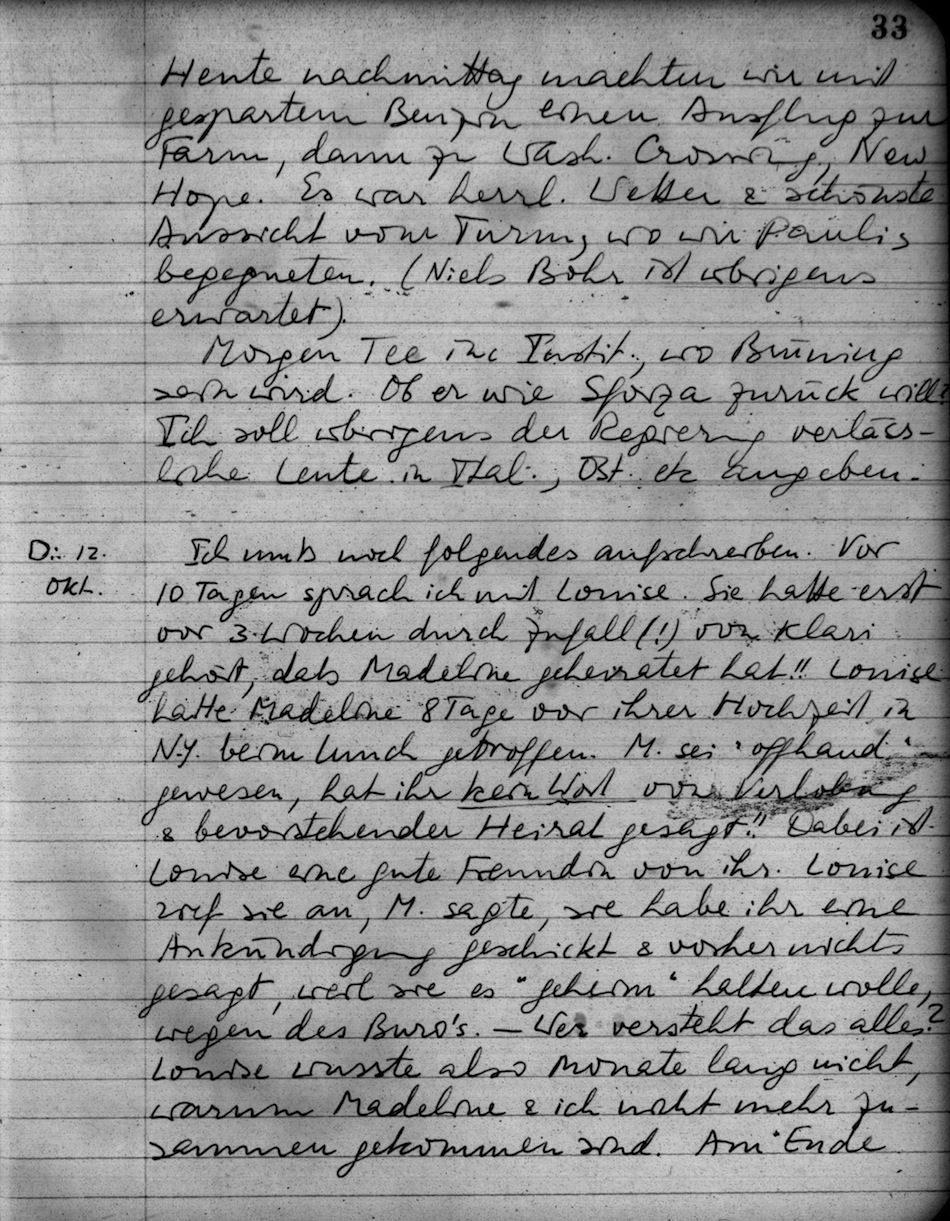 33
Heute nachmittag machten wir mit
gespartem Benzin einen Ausflug zur
Farm, dann zu Wash. Crossing, New
Hope. Es war herrl. Wetter & schönste
Aussicht vom Turm, wo wir Paulis
begegneten. (Niels Bohr ist übrigens
erwartet).
Morgen Tee im Instit., wo Brüning
sein wird. Ob er wie Sforza zurück will?
Ich soll übrigens der Regierung verläss-
liche Leute in Ital., Öst. etc angeben.
Di. 12.
Okt.
Ich muß noch folgendes aufschreiben. Vor
10 Tagen sprach ich mit Louise. Sie hatte erst
vor 3 Wochen durch Zufall (!) von Klari
gehört, daß Madeline geheiratet hat!! Louise
hatte Madeline 8 Tage vor ihrer Hochzeit in
N.Y. beim Lunch getroffen. M. sei "offhand"
gewesen, hat ihr kein Wort von Verlobung
& bevorstehender Heirat gesagt!! Dabei ist
Louise eine gute Freundin von ihr. Louise
rief sie an, M. sagte, sie habe ihr eine
Ankündigung geschickt & vorher nichts
gesagt, weil sie es "geheim" halten wolle,
wegen des Büro's. – Wer versteht das alles?
Louise wusste also Monate lang nicht,
warum Madeline & ich nicht mehr zu-
sammen gekommen sind. Am Ende